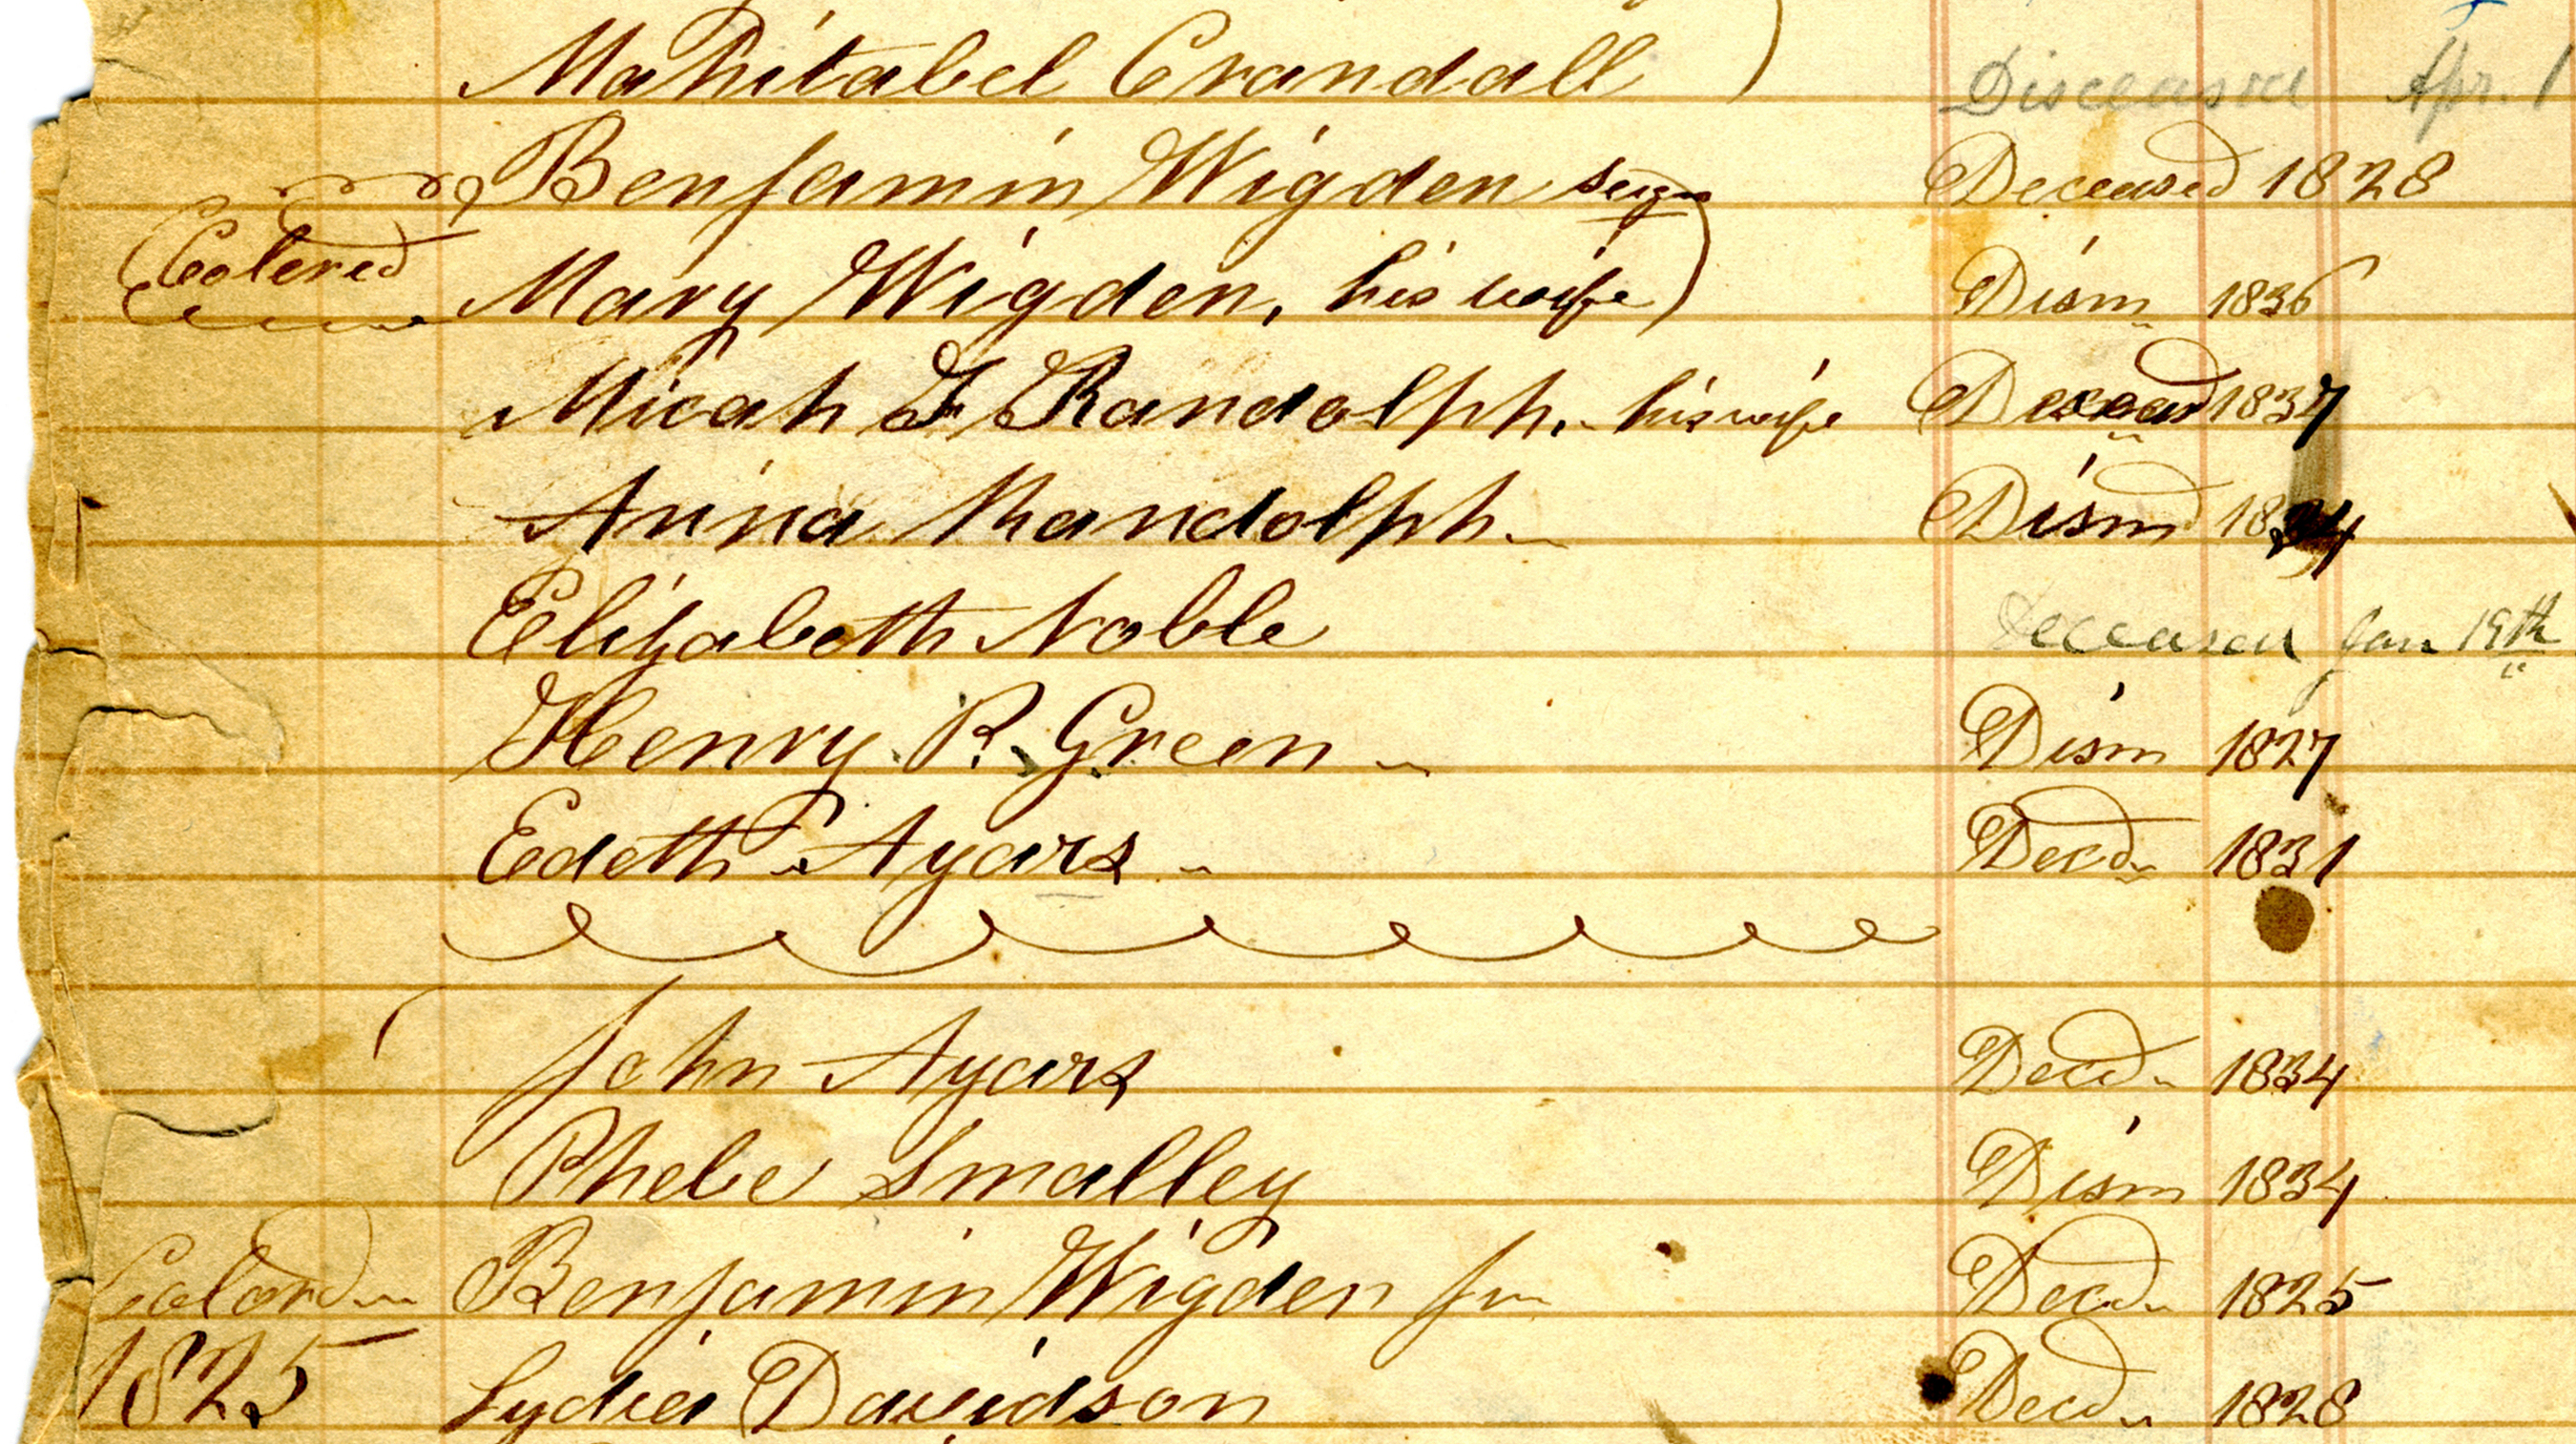 Mahitabel Crandall Disceased Apr. 1
Benjamin Wigden Deceased 1828
Colered Mary Wigden, his wife Dism 1836
Micah F Randolph. his wife Deceased 1837
Anna Randolph Dismd 1834
Elizabeth Noble Deceased Jan 19th
Henry P. Green Dism 1827
Edeth Ayars Decd 1831
John Ayars Decd 1834
Phebe Smalley Dism 1834
Colord Benjamin Wigden Jn Decd 1825
1825 Lydia Davidson Decd 1828